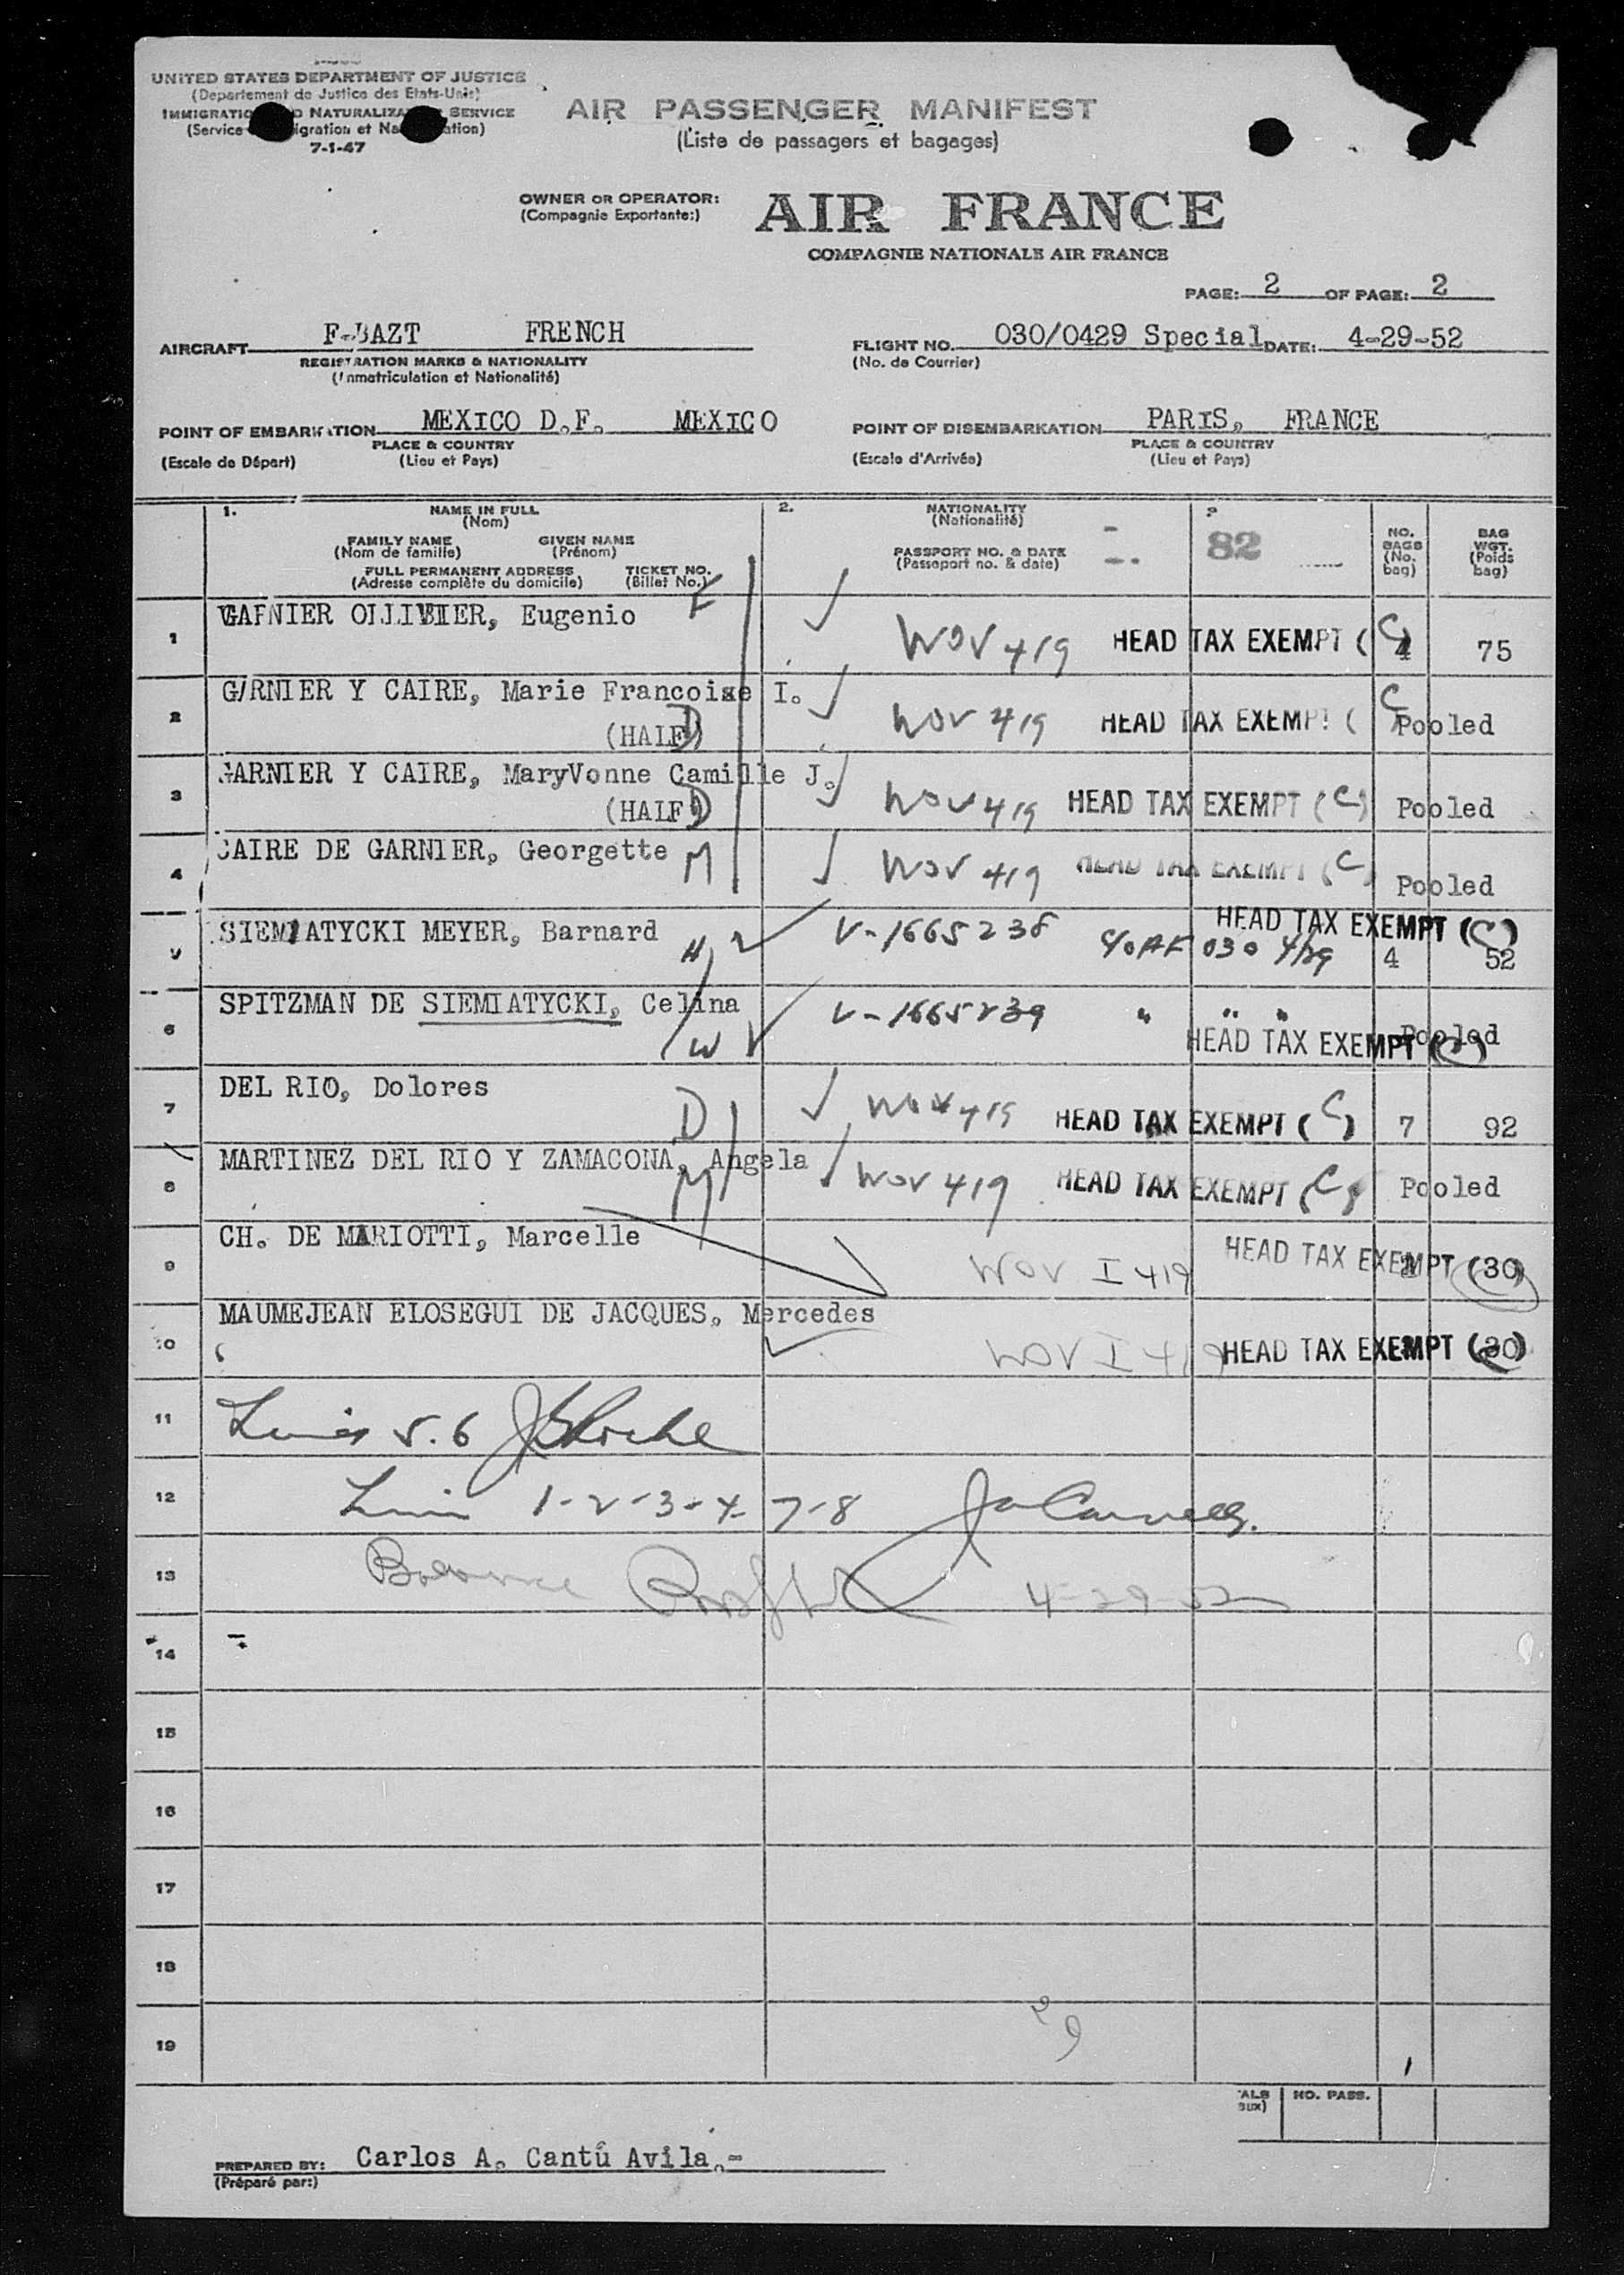 UNITED STATES DEPARTMENT OF JUSTICE
(Departement de Justice des Etats-Unis)
IMMIGRATION NATURALIZA SERVICE
(Service igration et Na ation)
7-1-47
AIR PASSENGER MANIFEST
(Liste de passagers et bagages)
OWNER OR OPERATOR:
(Compagnie Exportante:)
AIR FRANCE
COMPAGNIE NATIONALE AIR FRANCE
PAGE: 2 OF PAGE: 2
AIRCRAFT F-BAZT FRENCH
REGISTRATION MARKS & NATIONALITY
(Inmatriculation et Nationalité)
FLIGHT NO. 030/0429 Special DATE: 4-29-52
(No. de Courrier)
POINT OF EMBARKATION MEXICO D.F. MEXICO
PLACE & COUNTRY
(Escale de Départ) (Lieu et Pays)
POINT OF DISEMBARKATION PARIS, FRANCE
PLACE & COUNTRY
(Escale d'Arrivée) (Lieu et Pays)
1. NAME IN FULL
(Nom)
FAMILY NAME GIVEN NAME
(Nom de famille) (Prénom)
FULL PERMANENT ADDRESS TICKET NO.
(Adresse complète du domicile) (Billet No.)
2. NATIONALITY
(Nationalité)
PASSPORT NO. & DATE
(Passeport no. & date)
82
NO. BAGS (No. bag)
BAG WGT. (Poids bag)
1 GARNIER OLLIVIER, Eugenio F WOV 419 HEAD TAX EXEMPT (C) 4 75
2 GARNIER Y CAIRE, Marie Francoise I. WOV 419 HEAD TAX EXEMPT (C Pooled
(HALF) D
3 GARNIER Y CAIRE, MaryVonne Camille J. WOV 419 HEAD TAX EXEMPT (C) Pooled
(HALF) D
4 CAIRE DE GARNIER, Georgette M WOV 419 HEAD TAX EXEMPT (C) Pooled
5 SIEMIATYCKI MEYER, Barnard H V-1665238 C/o AF 030 4/29 HEAD TAX EXEMPT (C) 4 52
6 SPITZMAN DE SIEMIATYCKI, Celina W V-1665239 " " " HEAD TAX EXEMPT (C) Pooled
7 DEL RIO, Dolores D WOV 419 HEAD TAX EXEMPT (C) 7 92
8 MARTINEZ DEL RIO Y ZAMACONA, Angela M WOV 419 HEAD TAX EXEMPT (C) Pooled
9 CH. DE MARIOTTI, Marcelle WOV I 419 HEAD TAX EXEMPT (30)
10 MAUMEJEAN ELOSEGUI DE JACQUES, Mercedes WOV I 419 HEAD TAX EXEMPT (30)
11 Lines 5.6
12 Line 1-2-3-4-7-8
13 Balance 4-29-52
14
15
16
17
18
19
29
ALS NO. PASS.
aux)
PREPARED BY: Carlos A. Cantú Avila.-
(Préparé par:)